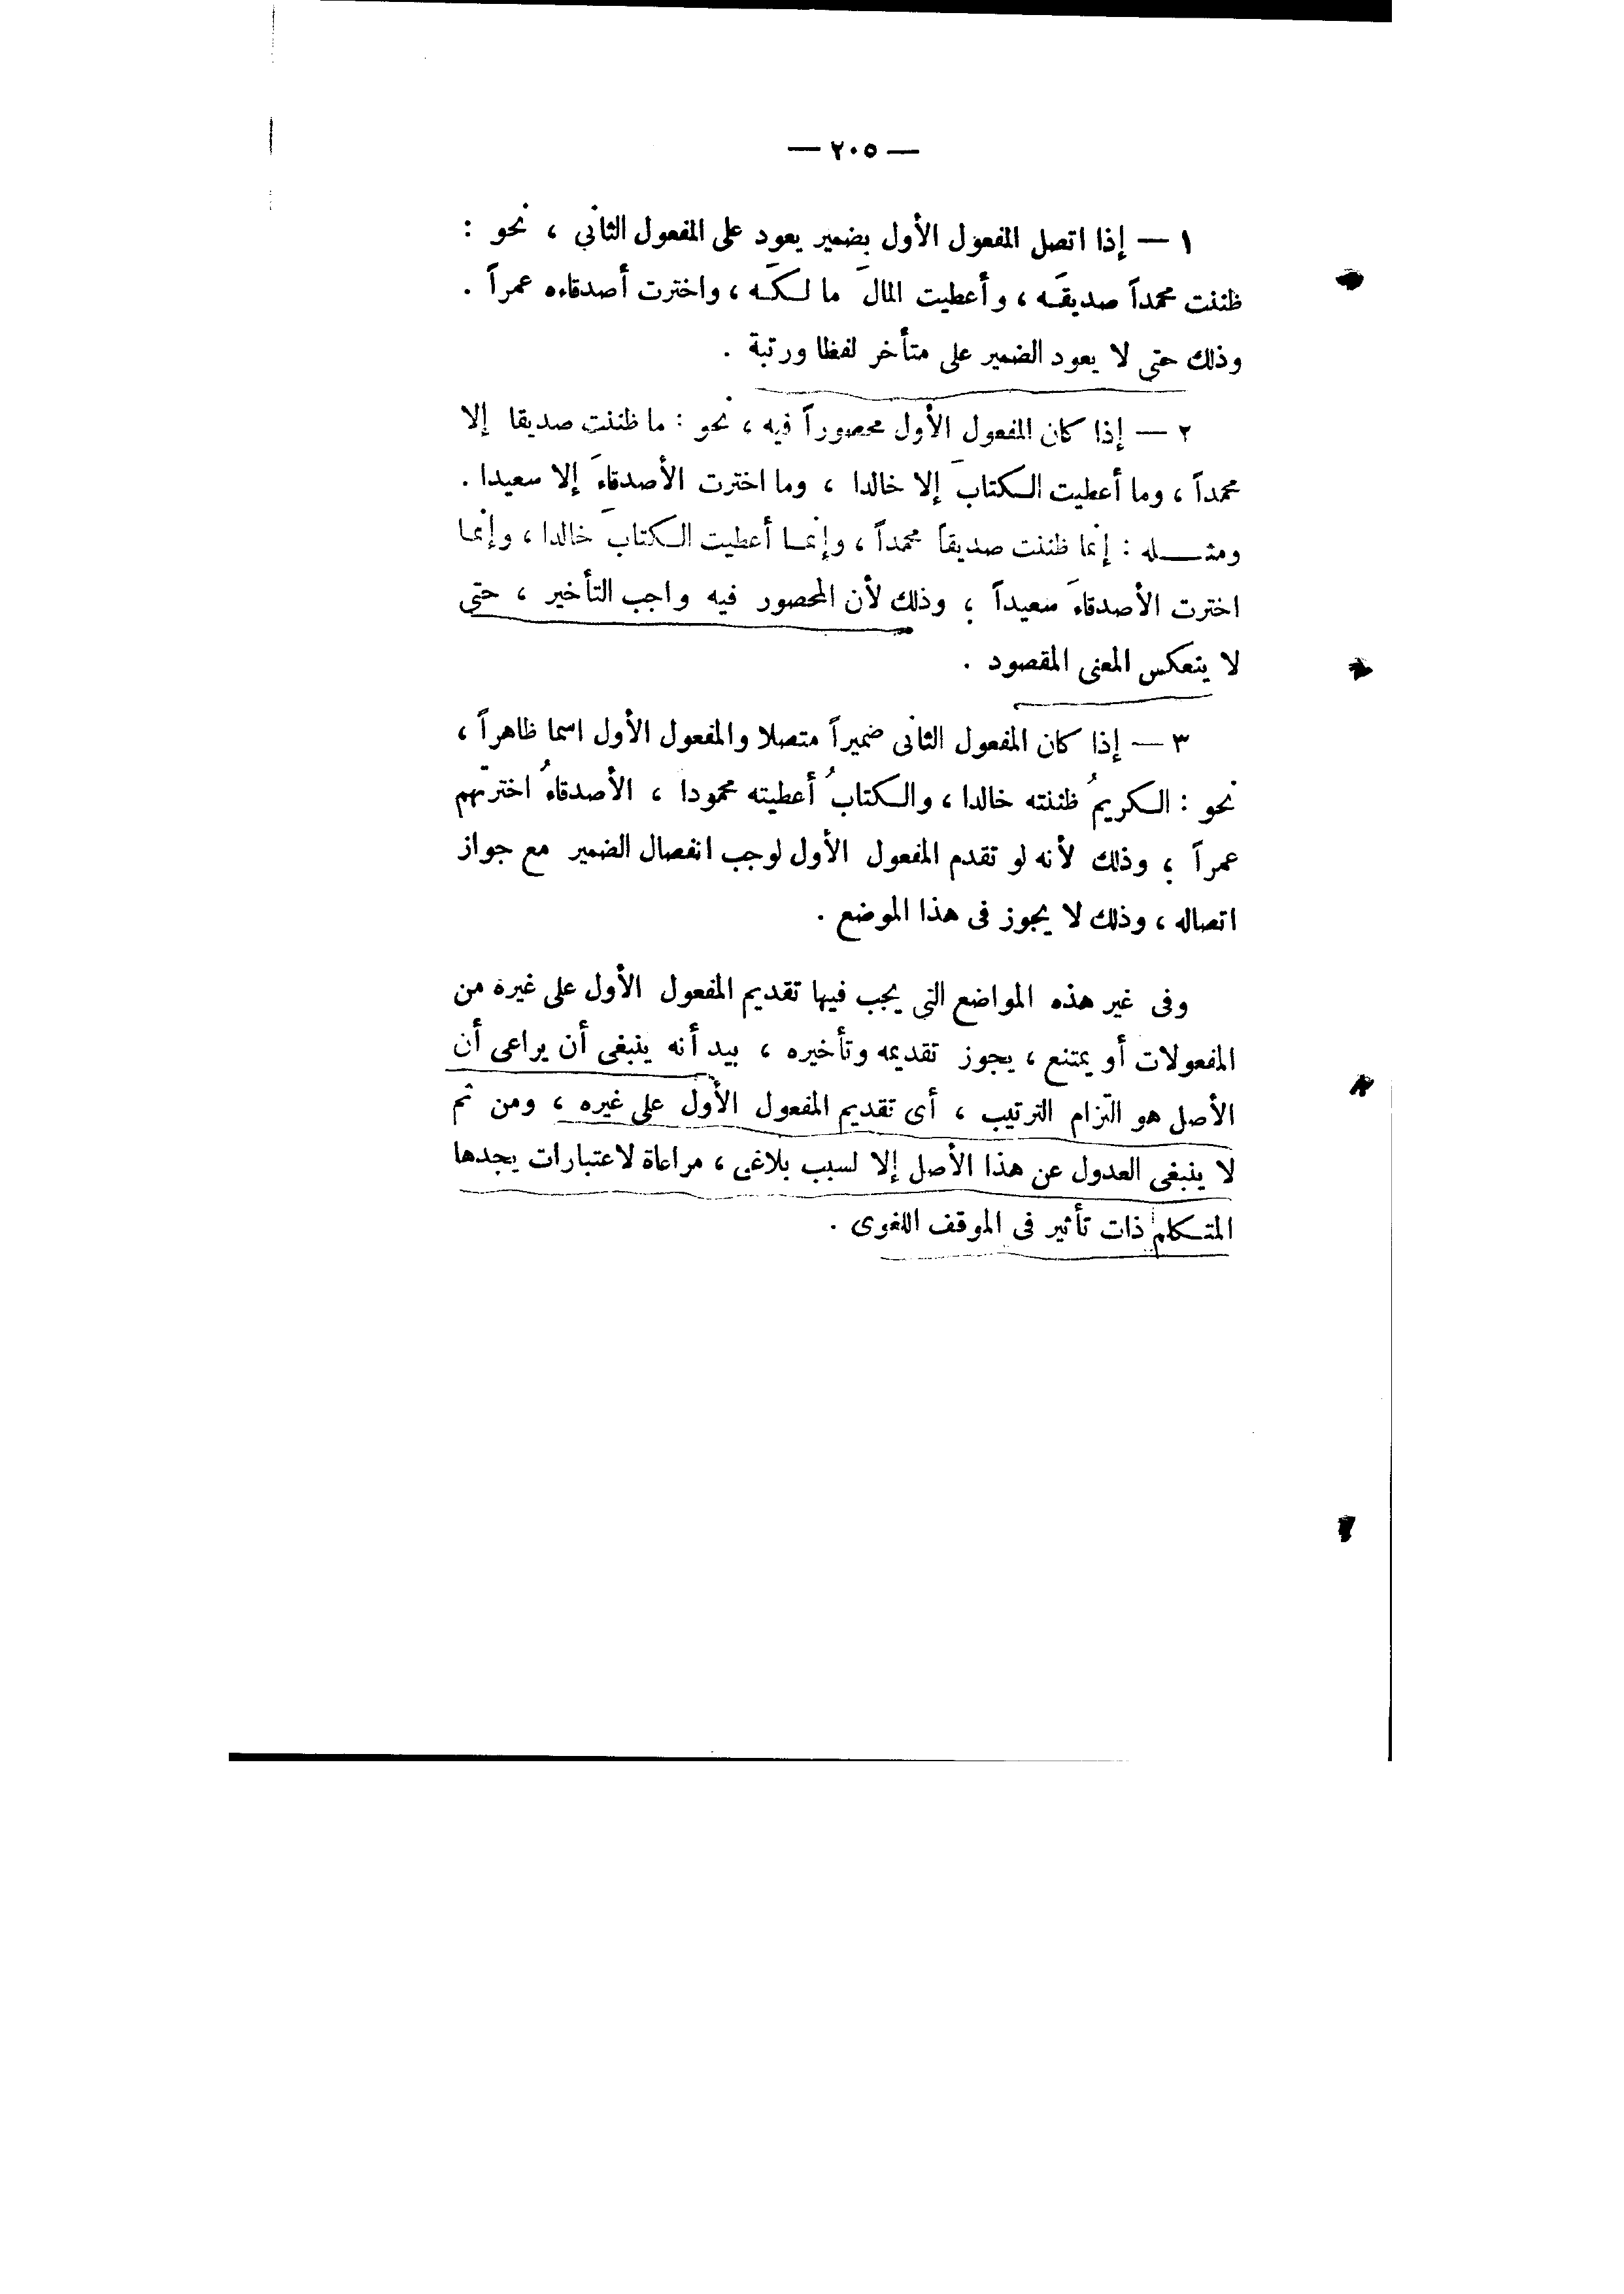 — ٢٠٥ —
١ — إذا اتصل المفعول الأول بضمير يعود على المفعول الثانى ، نحو :
ظننت محمداً صديقَـه ، وأعطيت المالَ مالـكَـه ، واخترت أصدقاءه عمراً .
وذلك حتى لا يعود الضمير على متأخر لفظا ورتبة .
٢ — إذا كان المفعول الأول محصوراً فيه ، نحو : ما ظننت صديقا إلا
محمداً ، وما أعطيت الـكتابَ إلا خالدا ، وما اخترت الأصدقاءَ إلا سعيدا .
ومثـــله : إنما ظننت صديقاً محمداً ، وإنمـا أعطيت الـكتابَ خالدا ، وإنما
اخترت الأصدقاءَ سعيداً ؛ وذلك لأن المحصور فيه واجب التأخير ، حتى
لا ينعكس المعنى المقصود .
٣ — إذا كان المفعول الثانى ضميراً متصلا والمفعول الأول اسما ظاهراً ،
نحو : الـكريمُ ظننته خالدا ، والـكتابُ أعطيته محمودا ، الأصدقاءُ اخترتهم
عمراً ؛ وذلك لأنه لو تقدم المفعول الأول لوجب انفصال الضمير مع جواز
اتصاله ، وذلك لا يجوز فى هذا الموضع .
وفى غير هذه المواضع التى يجب فيها تقديم المفعول الأول على غيره من
المفعولات أو يمتنع ، يجوز تقديمه وتأخيره ، بيد أنه ينبغى أن يراعى أن
الأصل هو التزام الترتيب ، أى تقديم المفعول الأول على غيره ، ومن ثم
لا ينبغى العدول عن هذا الأصل إلا لسبب بلاغى ، مراعاة لاعتبارات يجدها
المتـكلم ذات تأثير فى الموقف اللغوى .